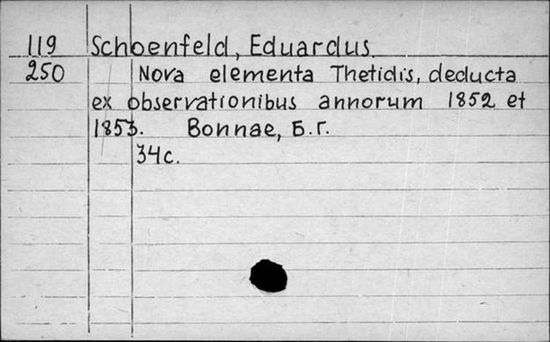 119 Schoenfeld, Eduardus
250 Nova elementa Thetidis, deducta
ex observationibus annorum 1852 et
1853. Bonnae, Б.г.
34с.